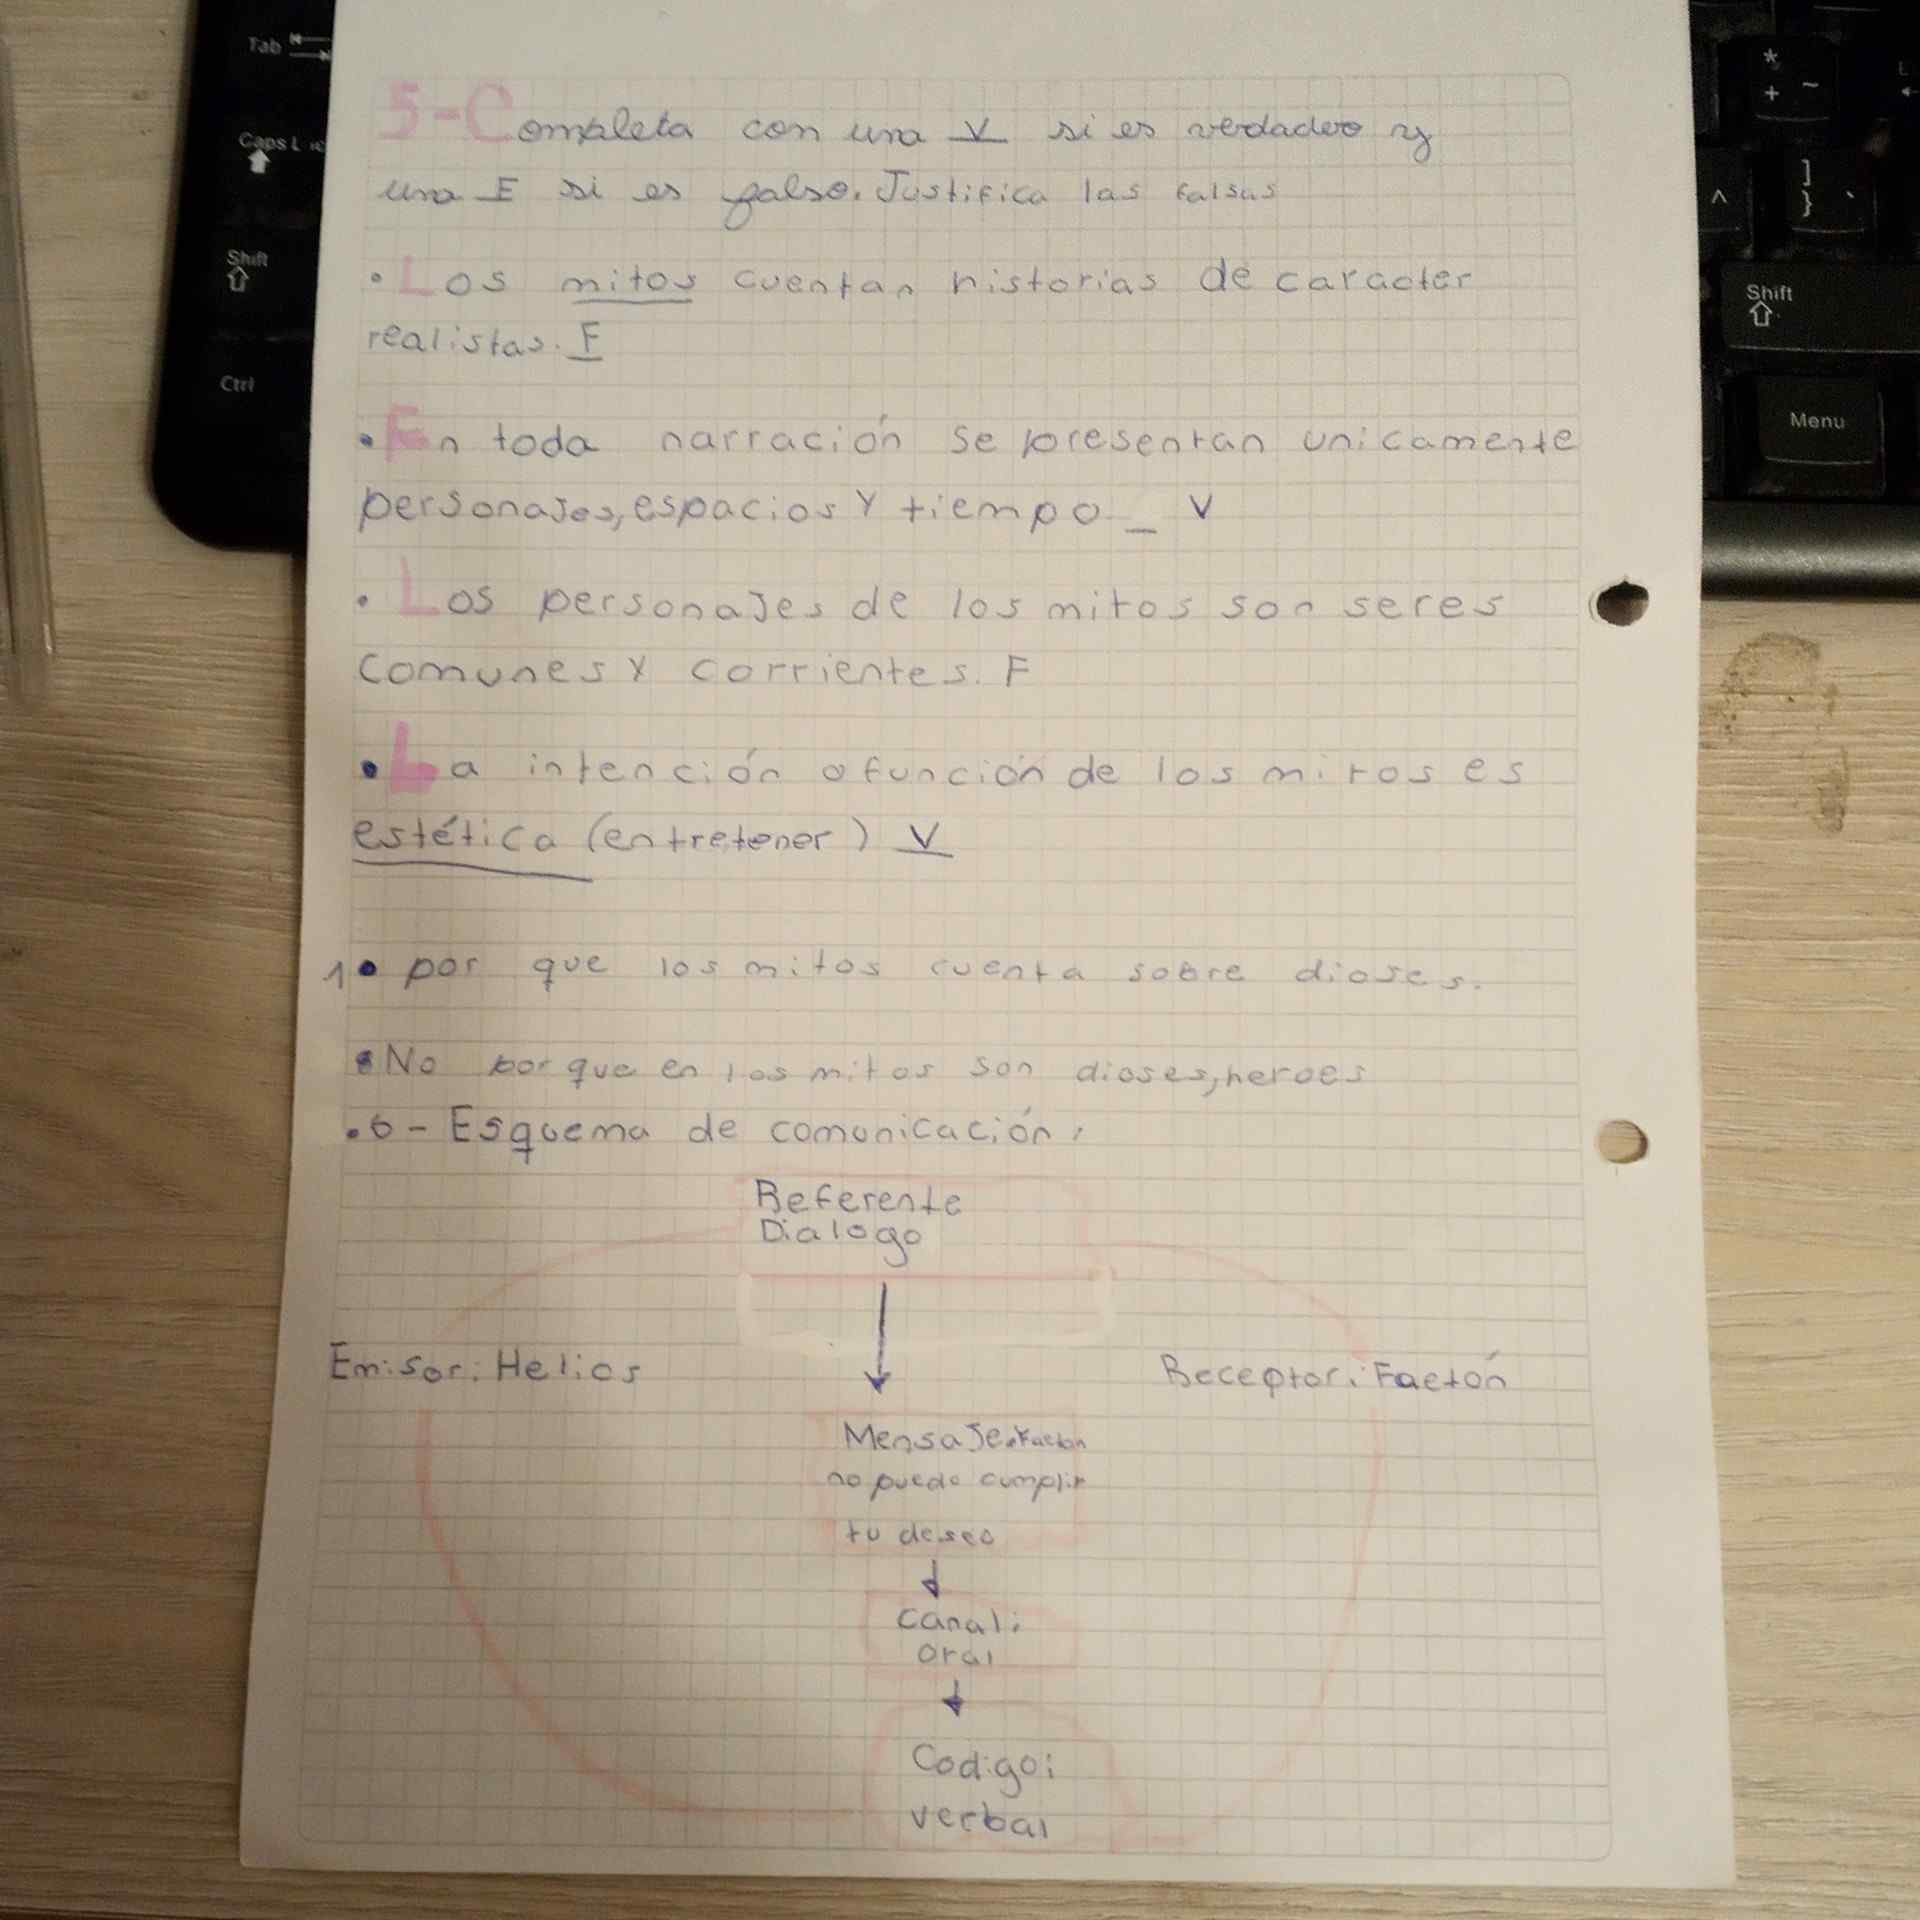 Tab
Caps L
Shift
Ctrl
*
+ ~
^
]
} `
Shift
Menu
5-Completa con una V si es verdadero y
una F si es falso. Justifica las falsas
• Los mitos cuentan historias de caracter
realistas. F
• En toda narración se presentan unicamente
personajes, espacios y tiempo _ V
• Los personajes de los mitos son seres
comunes y corrientes. F
• La intención o función de los mitos es
estética (entretener) V
1• por que los mitos cuenta sobre dioses.
• No por que en los mitos son dioses, heroes
.6- Esquema de comunicación:
Referente
Dialogo
Emisor: Helios
Receptor: Faetón
Mensaje. Faeton
no puedo cumplir
tu deseo
Canal:
oral
Codigo:
verbal